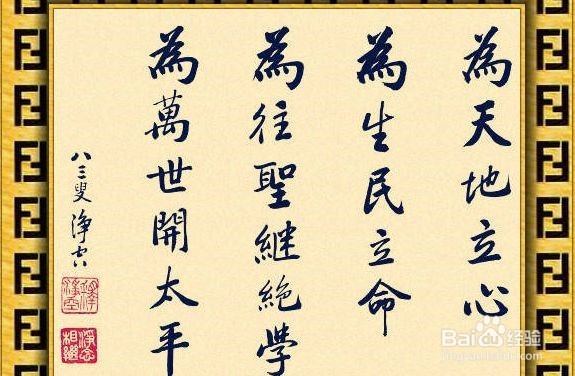 為天地立心
為生民立命
為往聖繼絕學
為萬世開太平
八三叟淨空
淨念
相繼
Baidu经验
jingyan.baidu.com